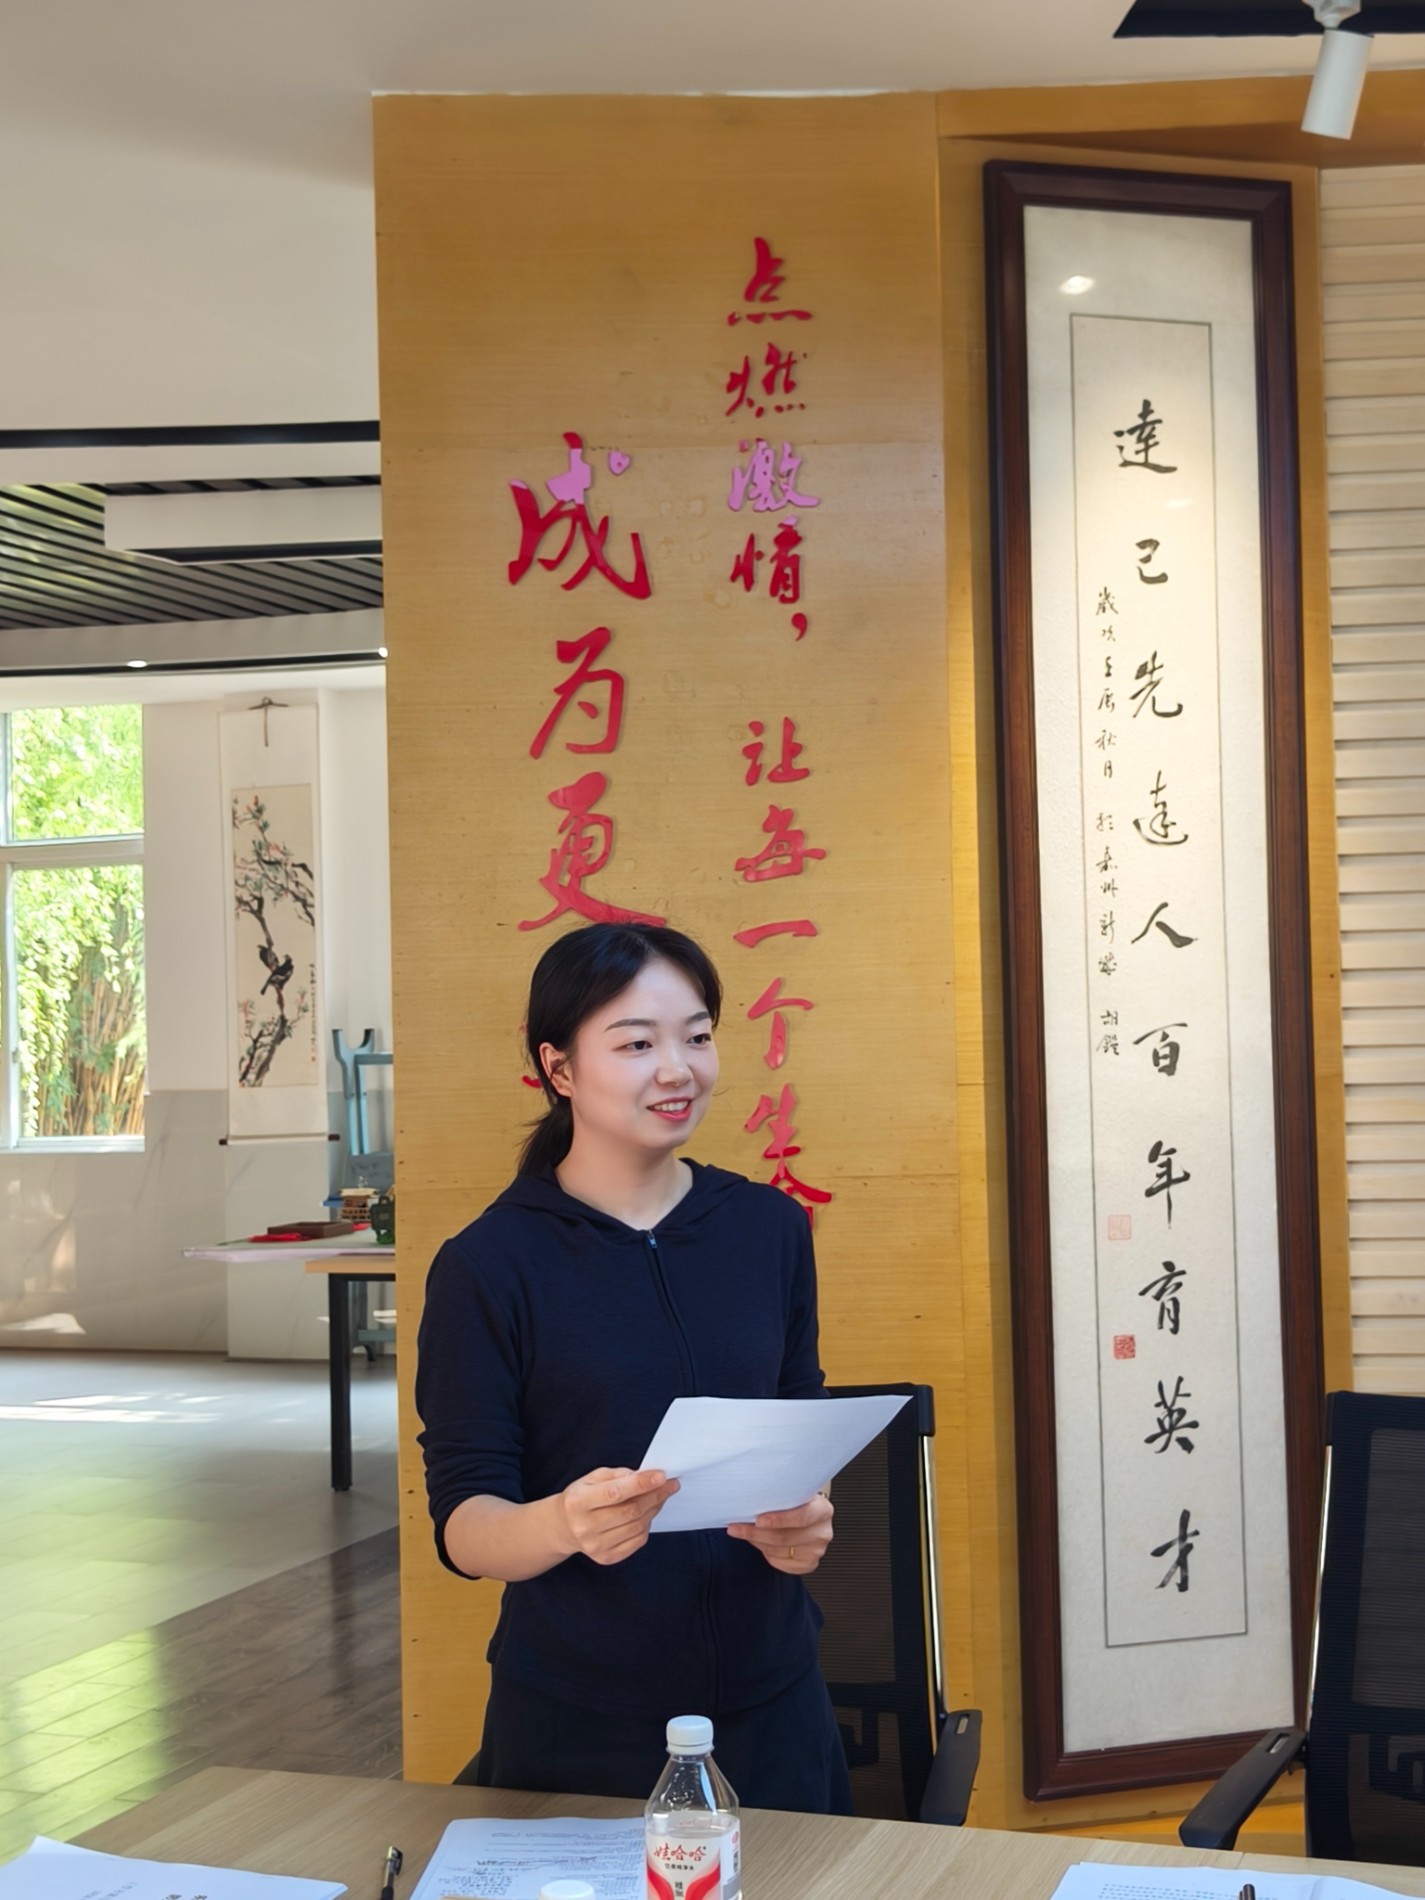 点燃激情，让每一个生命
成为更
達己先達人百年育英才
歲次壬辰秋月於嘉州新 胡鐙
娃哈哈